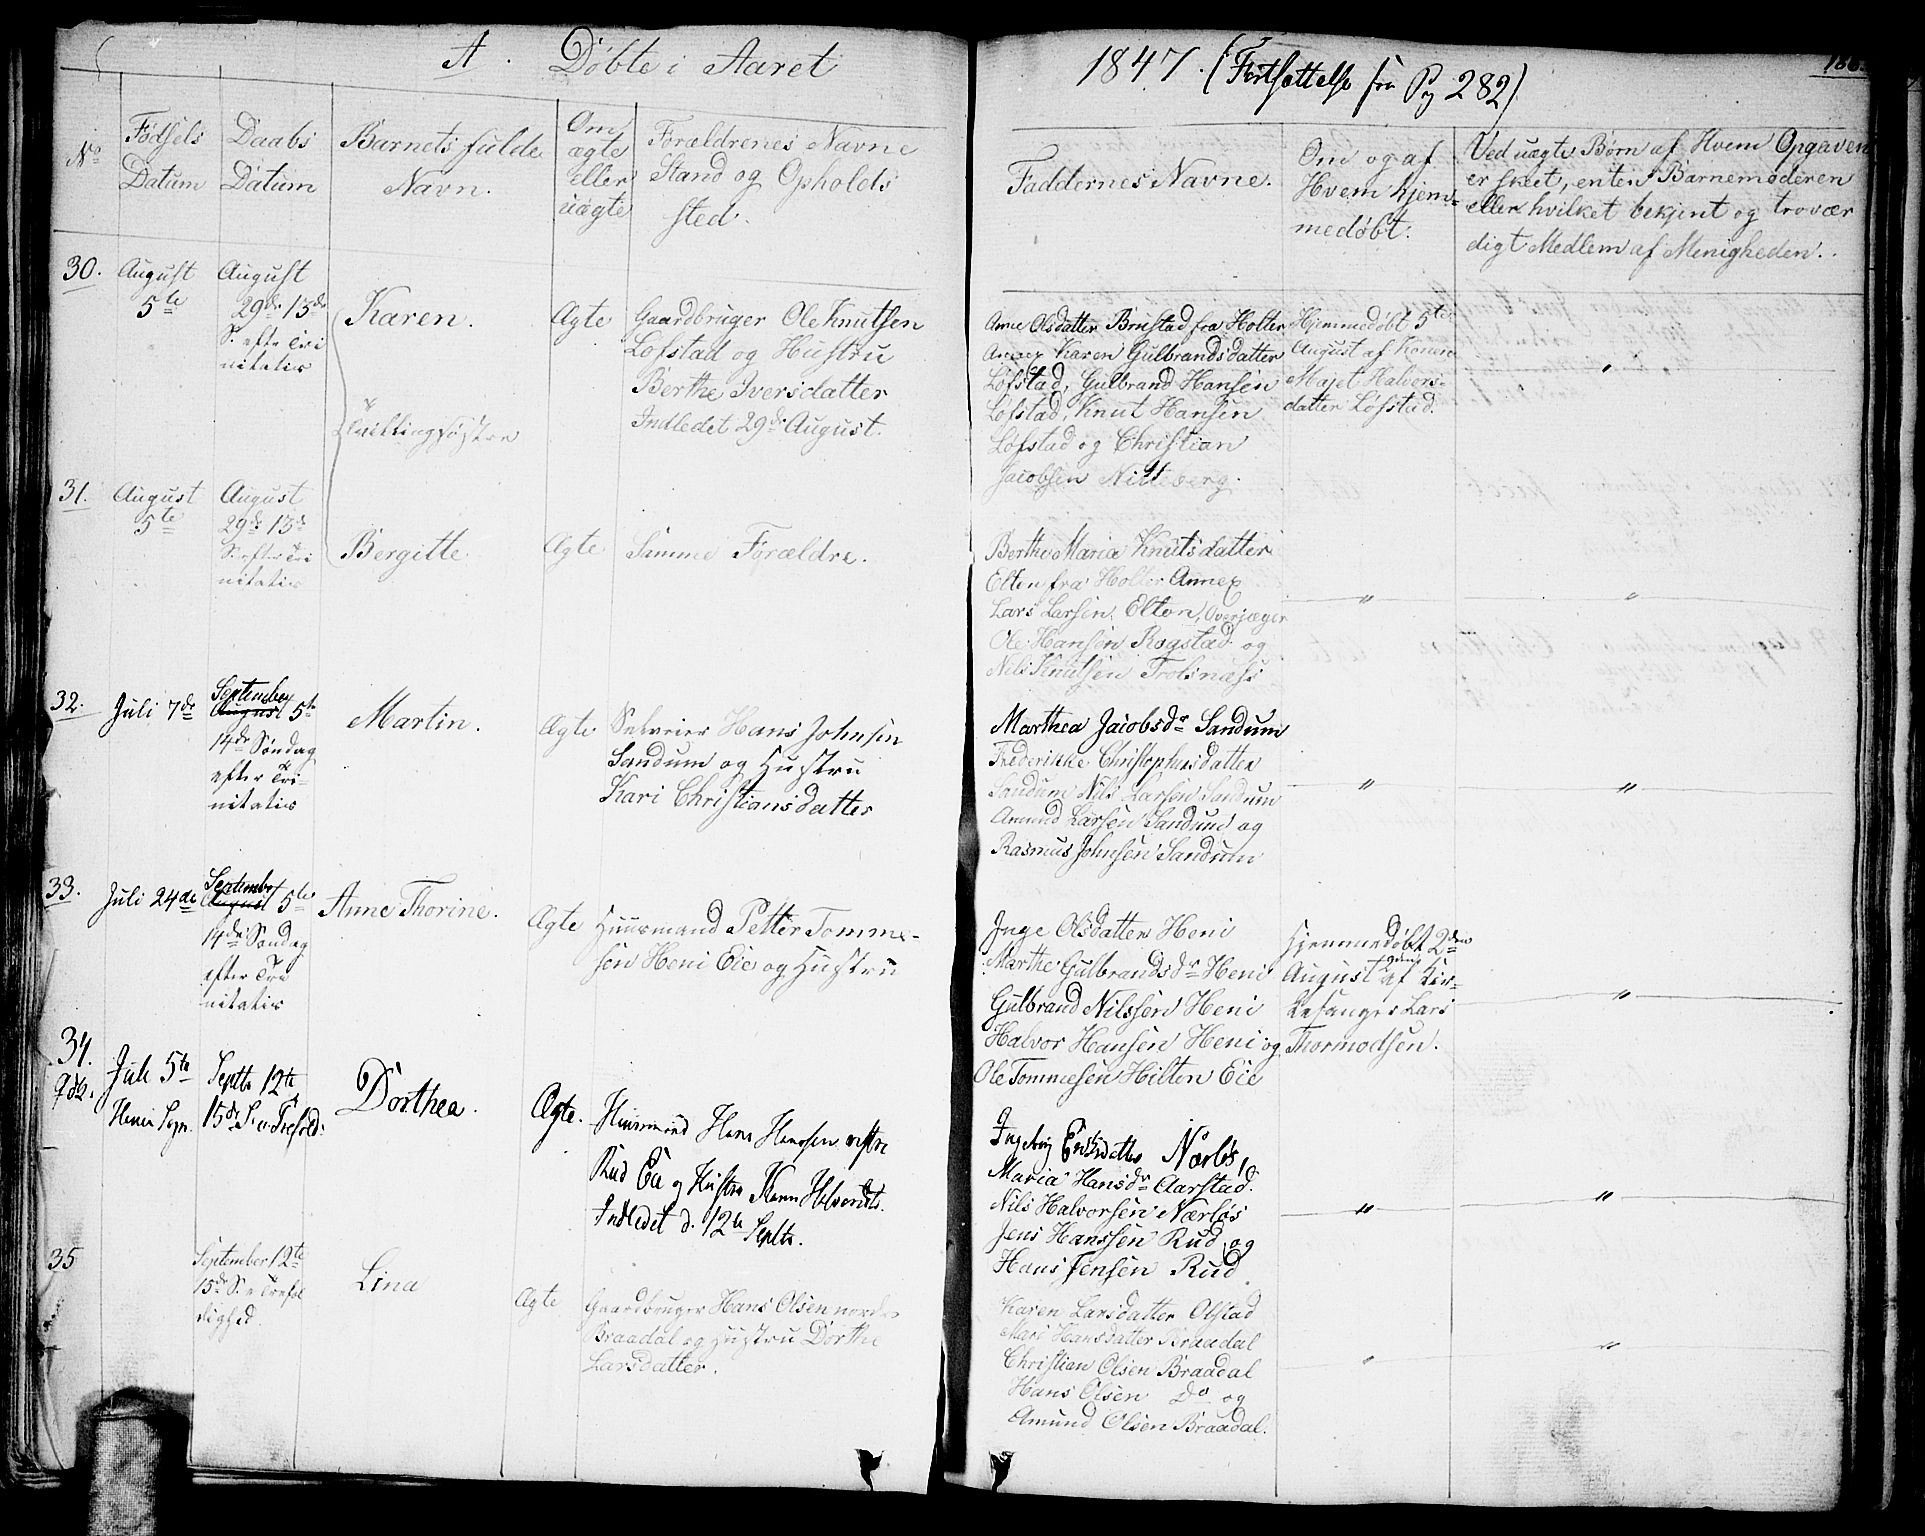 A. Døbte i Aaret
1847. (Fortsættelse fra Pg 282)
No
Fødsels Datum
Daabs Datum
Barnets fulde Navn.
Om ægte eller uægte
Forældrenes Navne Stand og Opholdssted.
Faddernes Navne.
Om og af Hvem hjemmedøbt.
Ved uægte Børn af Hvem Opgaven
er skeet, enten Barnemoderen
eller hvilket bekjent og troværdigt
Medlem af Menigheden.
30.
August
5te
August
29de 13de
S. efter Trinitatis
Karen.
Tvillingsøstre
Ægte
Gaardbruger Ole Knutsen
Løfstad og Hustru
Berthe Iversdatter
Indledet 29de August.
Anne Olsdatter Brustad fra Holter
Annex Karen Gulbrandsdatter
Løfstad, Gulbrand Hansen
Løfstad, Knut Hansen
Løfstad og Christian
Jacobsen Nitteberg.
Hjemmedøbt 5te
August af Konen
Majet Halvorsdatter
Løfstad.
"
31.
August
5te
August
29de 13de
S. efter Trinitatis
Bergitte
Ægte
Samme Forældre.
Berthe Maria Knutsdatter
Elton fra Holter Annex
Lars Larsen Elton, Overjæger
Ole Hansen Rogstad og
Nils Knutsen Trotsnæss
"
"
32.
Juli 7de
September
August 5te
14de Søndag
efter Trinitatis
Martin.
Ægte
Selveier Hans Johnsen
Sandum og Hustru
Kari Christiansdatter
Marthea Jacobsdr Sandum
Frederikke Christophersdatter
Sandum Nils Larsen Sandum
Amund Larsen Sandum og
Rasmus Johnsen Sandum
"
"
33.
Juli 24de
September
August 5te
14de Søndag
efter Trinitatis
Anne Thorine.
Ægte
Huusmand Petter Tommesen
Heni Eie og Hustru
Inge Olsdatter Heni
Marthe Gulbrandsdr Heni
Gulbrand Nilssen Heni
Halvor Hansen Heni og
Ole Tommesen Hilten Eie
Hjemmedøbt 2den
August af Kirkesanger
Lars
Thormodsen.
"
34.
Juli 5te
Septbr 12te
15de S. e. Trefold:
Dorthea.
Ægte.
Huusmand Hans Hansen vestre
Rud Eie og Hustru Karen Halvorsdtr.
Indledet d. 12te Septbr.
Ingeborg Ericksdatter Nærløs,
Maria Hansdr Aarstad.
Nils Halvorsen Nærløs
Jens Hanssen Rud og
Hans Jensen Rud
"
"
35
September 12te
15de S. e Trefoldighed.
Lina
Ægte
Gaardbruger Hans Olsen nordre
Braadal og Hustru Dorthe
Larsdatter.
Karen Larsdatter Olstad
Mari Hansdatter Braadal
Christian Olsen Braadal
Hans Olsen Do og
Amund Olsen Braadal.
"
"